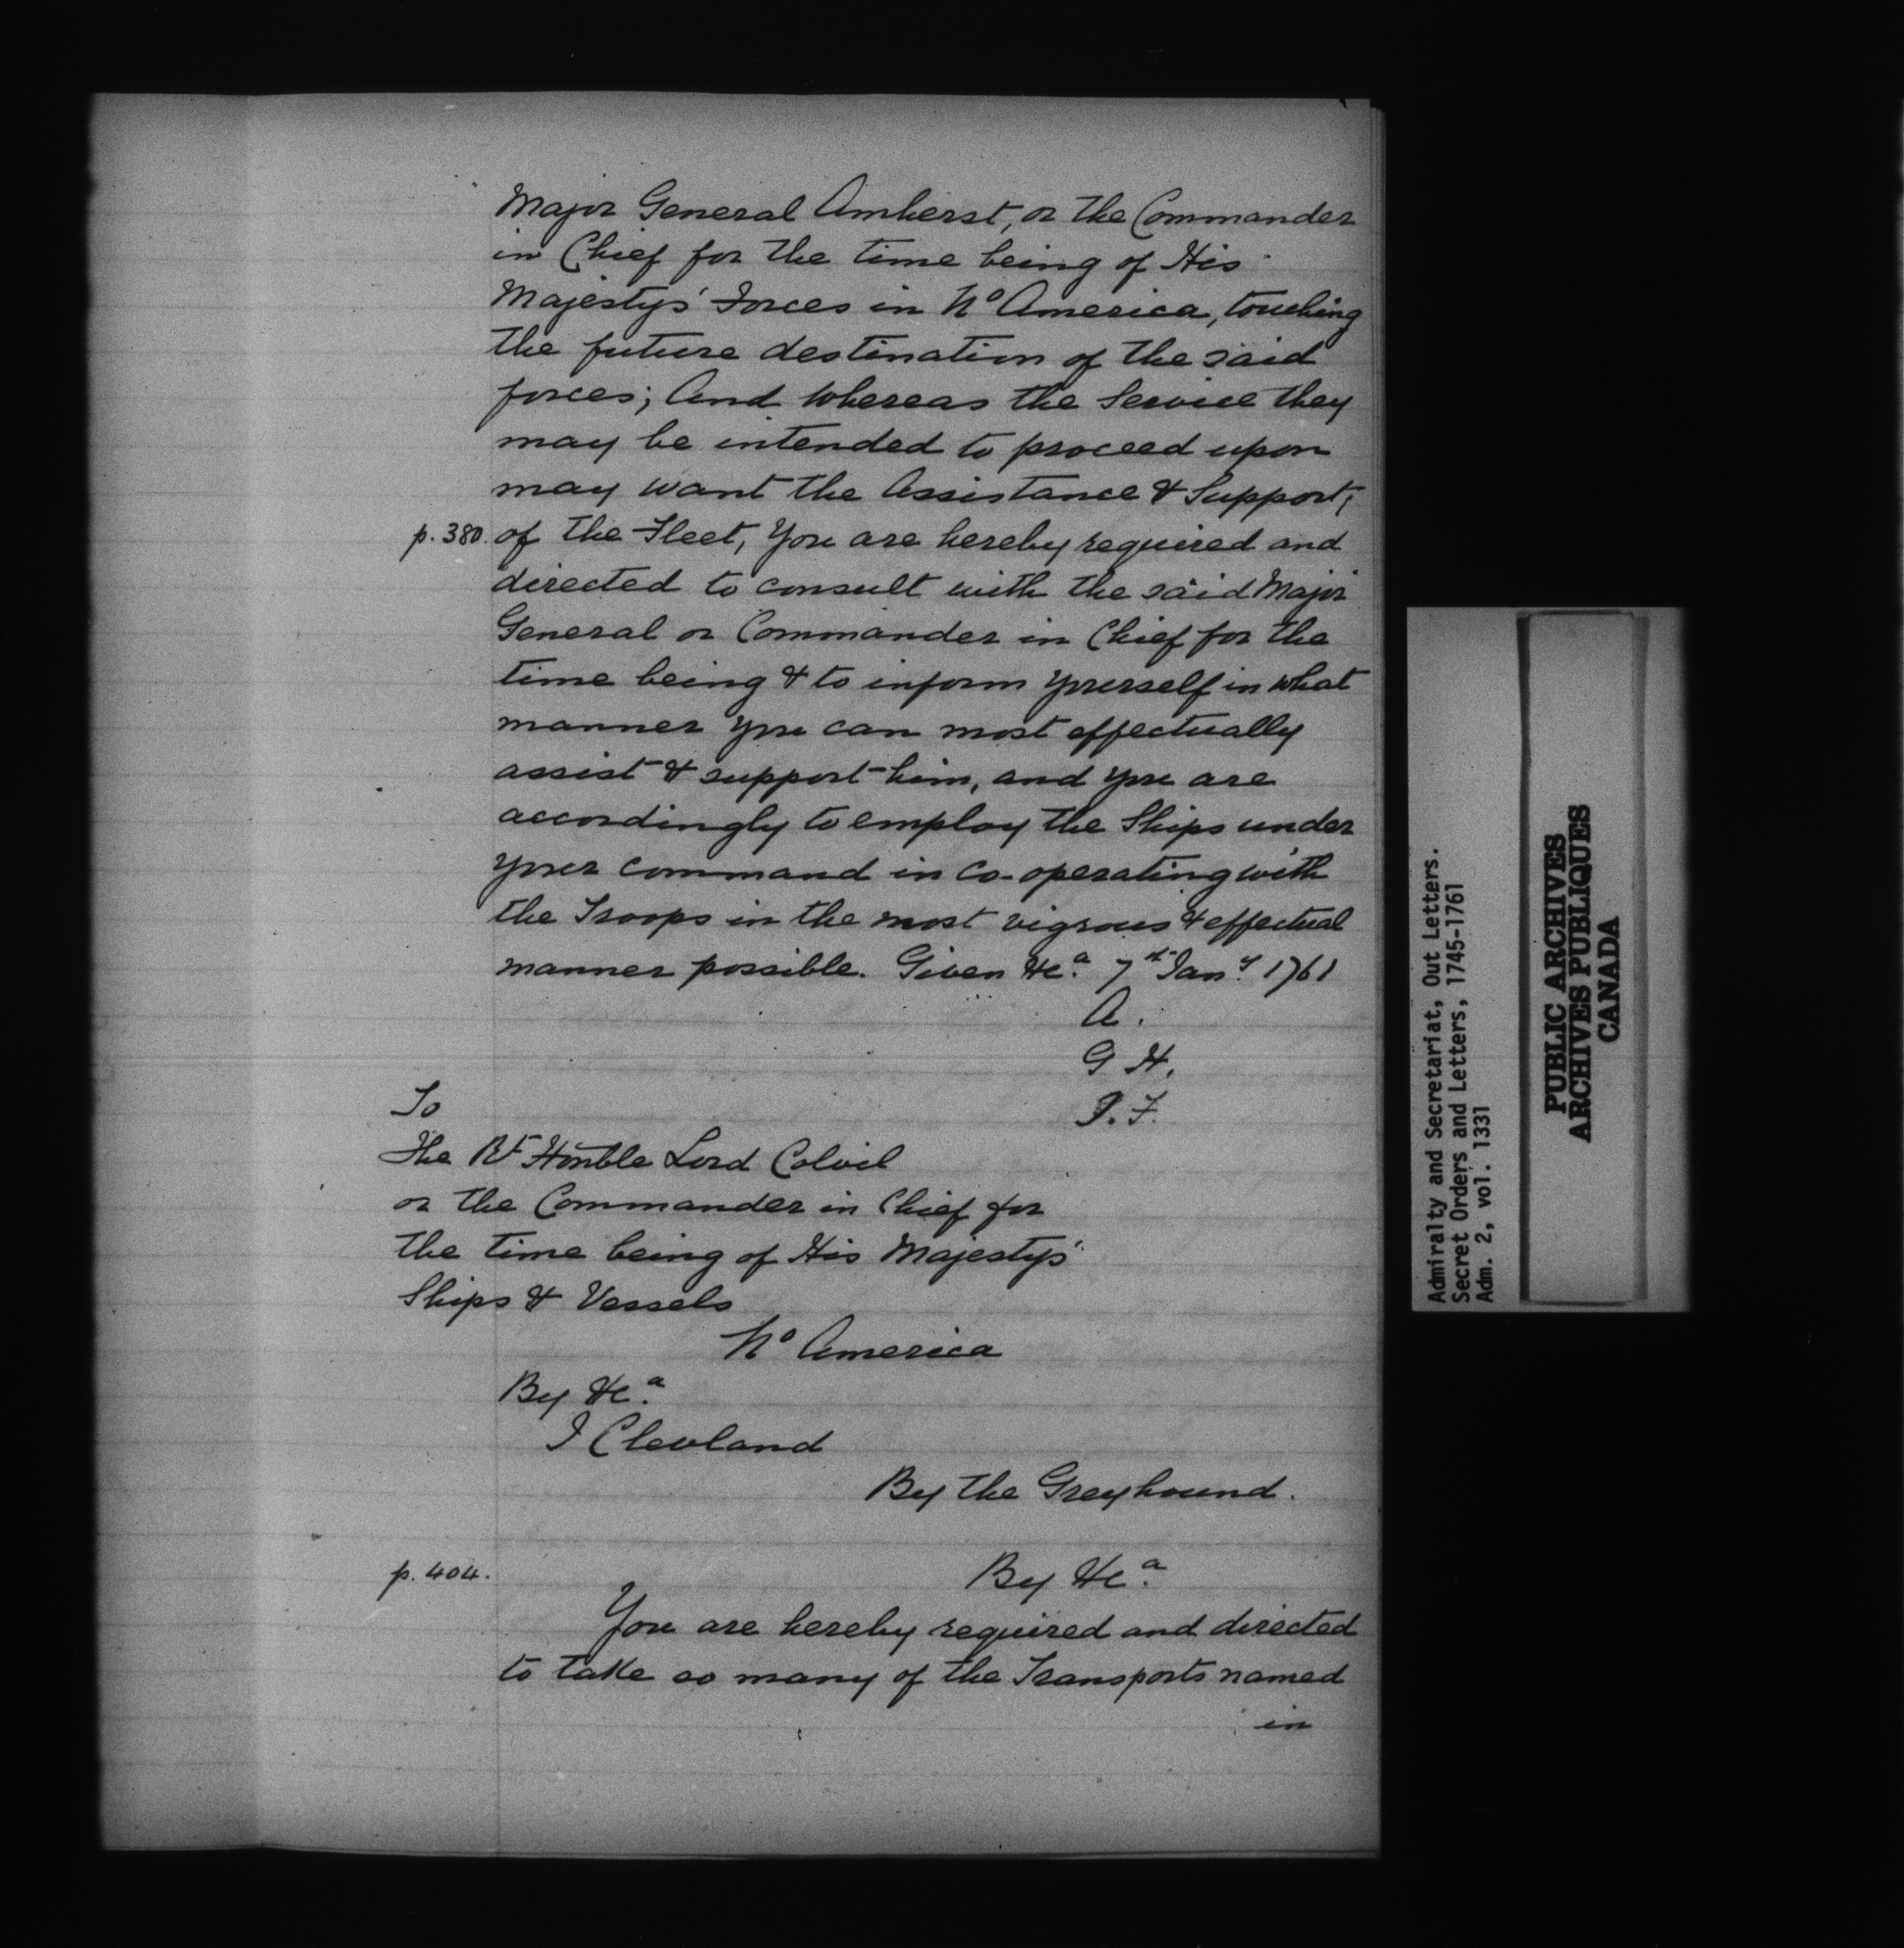 Major General Amherst, or the Commander
in Chief for the time being of His
Majestys' Forces in No America, touching
the future destination of the said
forces; And whereas the Service they
may be intended to proceed upon
may want the Assistance & Support,
p. 380. of the Fleet, You are hereby required and
directed to consult with the said Major
General or Commander in Chief for the
time being & to inform yourself in what
manner you can most effectually
assist & support him, and you are
accordingly to employ the Ships under
your command in co-operating with
the Troops in the most vigrous & effectual
manner possible. Given &ca. 7th Jany 1761
A.
G H.
J. F.
To
The Rt Honble Lord Colvil
or the Commander in Chief for
the time being of His Majestys'
Ships & Vessels
No America
By &ca.
J Clevland
By the Greyhound.
p. 404.
By &ca.
You are hereby required and directed
to take so many of the Transports named
in
Admiralty and Secretariat, Out Letters.
Secret Orders and Letters, 1745-1761
Adm. 2, vol. 1331
PUBLIC ARCHIVES
ARCHIVES PUBLIQUES
CANADA